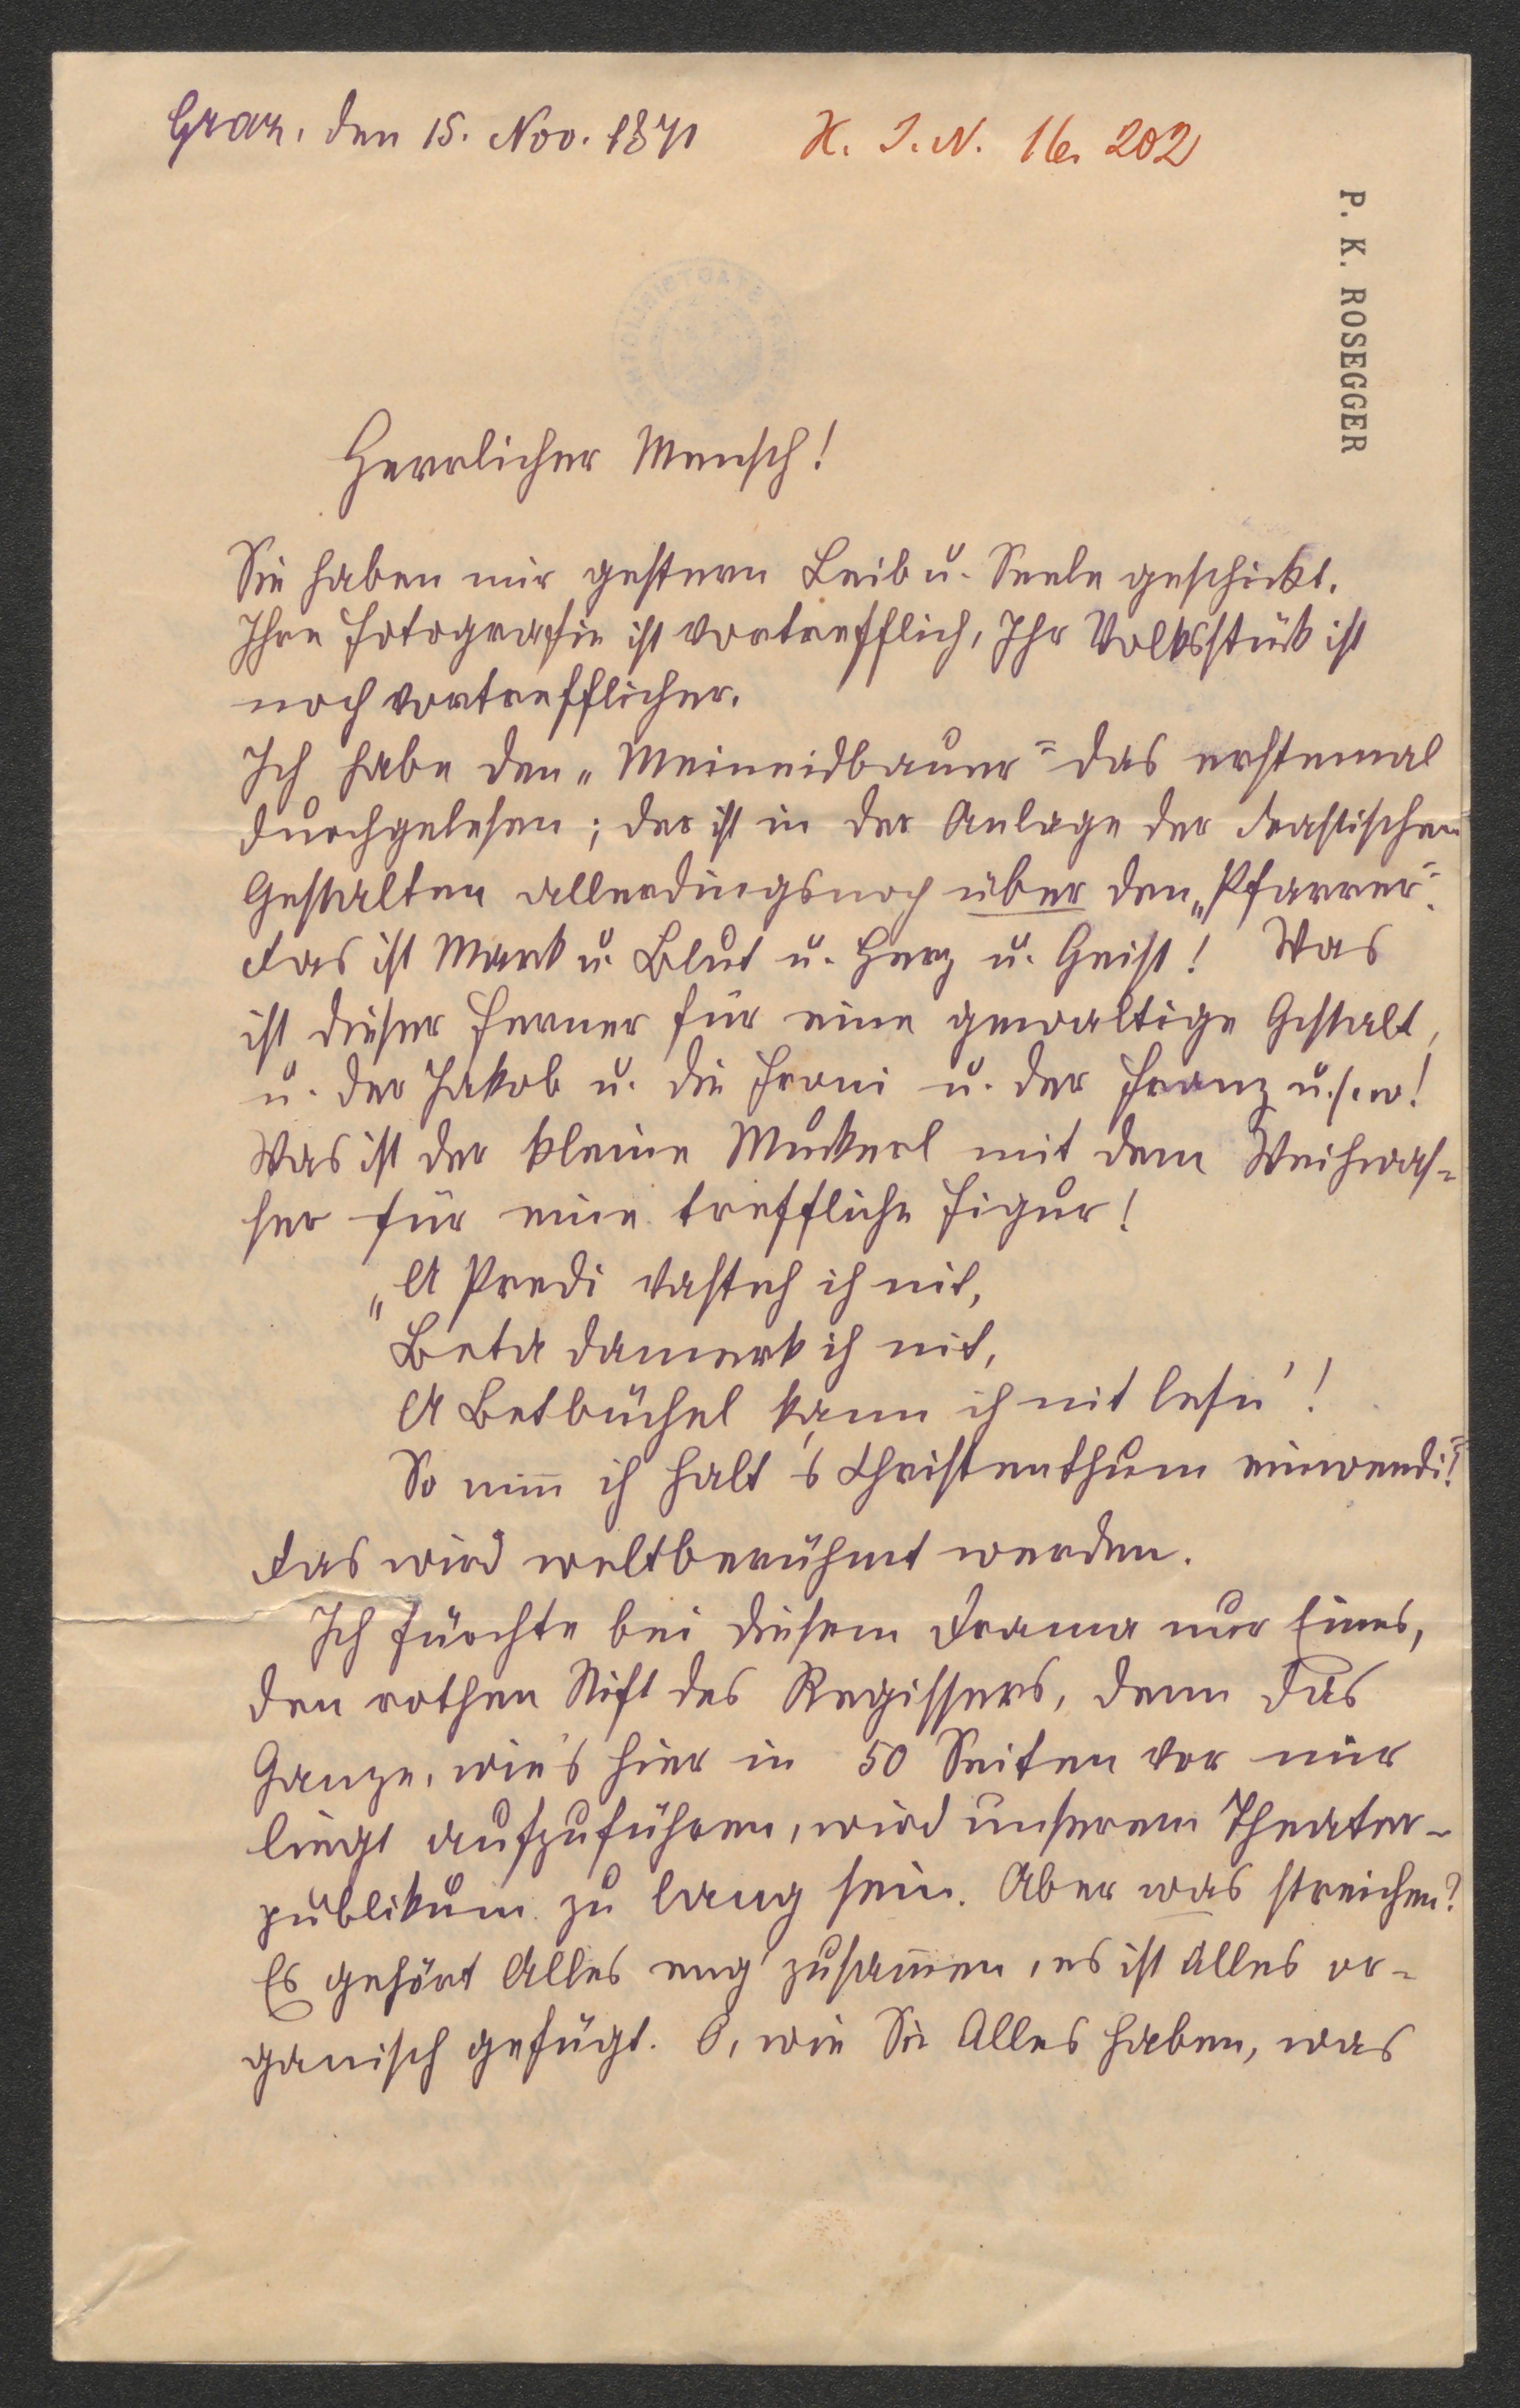 Graz, den 15. Nov. 1871
H. I. N. 16. 202
P. K. ROSEGGER
Herrlicher Mensch!
Sie haben mir gestern Leib u. Seele geschickt.
Ihre Fotografie ist vortrefflich, Ihr Volksstück ist
noch vortrefflicher.
Ich habe den „Meineidbauer" das erstemal
durchgelesen; der ist in der Anlage der drastischen
Gestalten allerdings noch über den „Pfarrer".
Das ist Mark u. Blut u. Herz u. Geist! Was
ist dieser Ferner für eine gewaltige Gestalt,
u. der Jakob u. die Froni u. der Franz u.s.w!
Was ist der kleine Muckerl mit dem Weihwas=
ser für eine treffliche Figur!
„A Predi vasteh ich nit,
Beta damerk ich nit,
A Betbüchel kann ich nit lesn'!
So nim̅ ich halt 's Christenthum einwendi!"
Das wird weltberühmt werden.
Ich fürchte bei diesem Drama nur Eines,
den rothen Stift des Regissers, denn das
Ganze, wie's hier in 50 Seiten vor mir
liegt aufzuführen, wird unserem Theater-
publikum zu lang sein. Aber was streichen?
Es gehört Alles eng' zusam̅en, es ist Alles or=
ganisch gefügt. O, wie Sie Alles haben, was